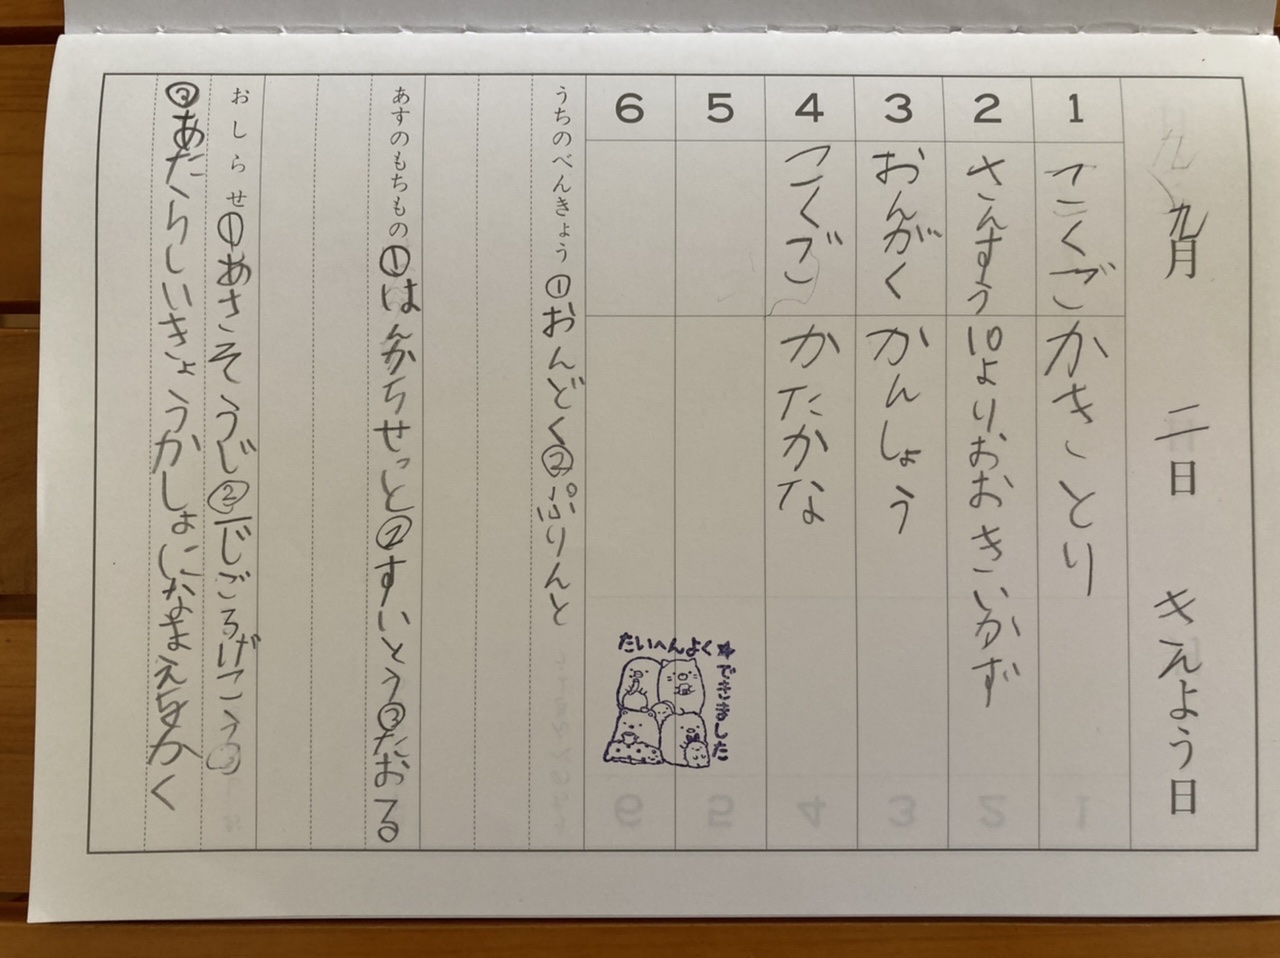 九月 二日 きんよう日
1 こくご かきことり
2 さんすう 10よりおおきいかず
3 おんがく かんしょう
4 こくご かたかな
5
6
たいへんよく
できました
うちのべんきょう ①おんどく②ぷりんと
あすのもちもの ①はんかちせっと②すいとう③たおる
おしらせ ①あさそうじ②一じごろげこう
③あたらしいきょうかしょになまえをかく